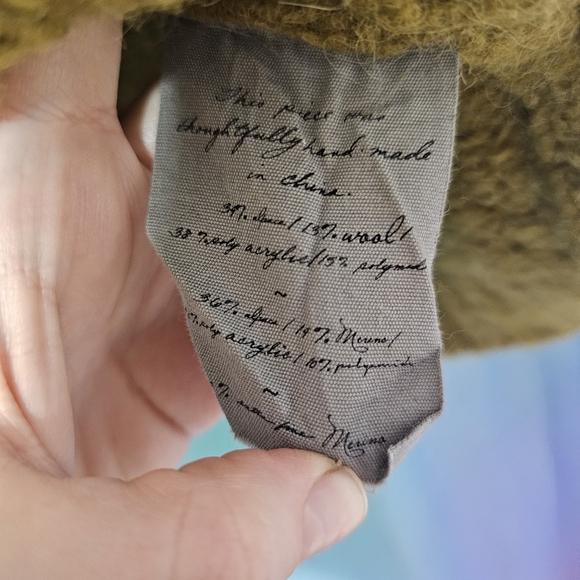 This piece was
thoughtfully hand-made
in china.
34% alpaca / 13% wool /
38% poly acrylic / 15% polyamide
~
36% alpaca / 14% Merino /
% poly acrylic / 10% polyamide
~
% Merino